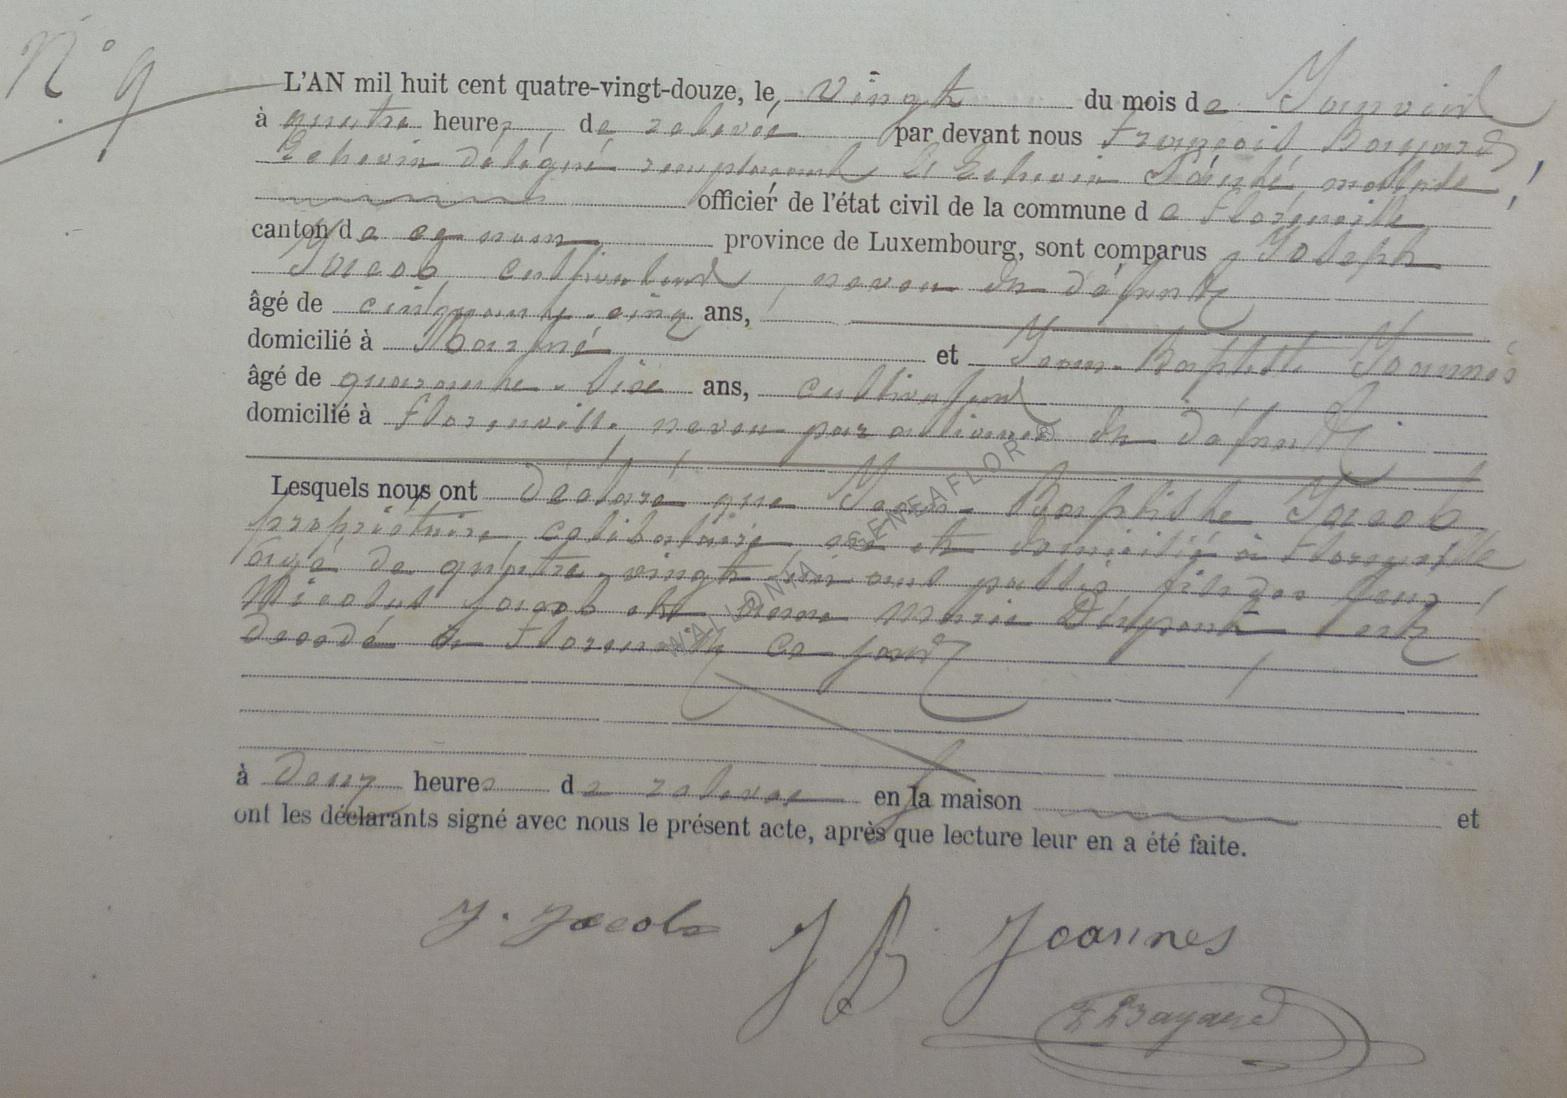 N° 9
L'AN mil huit cent quatre-vingt-douze, le vingt du mois de Janvier
à quatre heures de relevée par devant nous François Bayard
Echevin délégué remplacant l'Echevin malade
officier de l'état civil de la commune de Florenville
canton de ce nom province de Luxembourg, sont comparus Joseph
Jacob, cultivateur, neveu du défunt
âgé de cinquante-cinq ans,
domicilié à et Jean-Baptiste Joannes
âgé de quarante-six ans, cultivateur
domicilié à Florenville, neveu par alliance du défunt
Lesquels nous ont déclaré que Jean-Baptiste Jacob
propriétaire, célibataire né et domicilié à Florenville
âgé de quatre-vingt un ans passés fils des feux
Nicolas Jacob et Marie est
décédé à Florenville ce jour
à deux heures de relevée en la maison et
ont les déclarants signé avec nous le présent acte, après que lecture leur en a été faite.
J. Jacob J B Joannes
F Bayard
WALLONIA GENEAFLOR ©